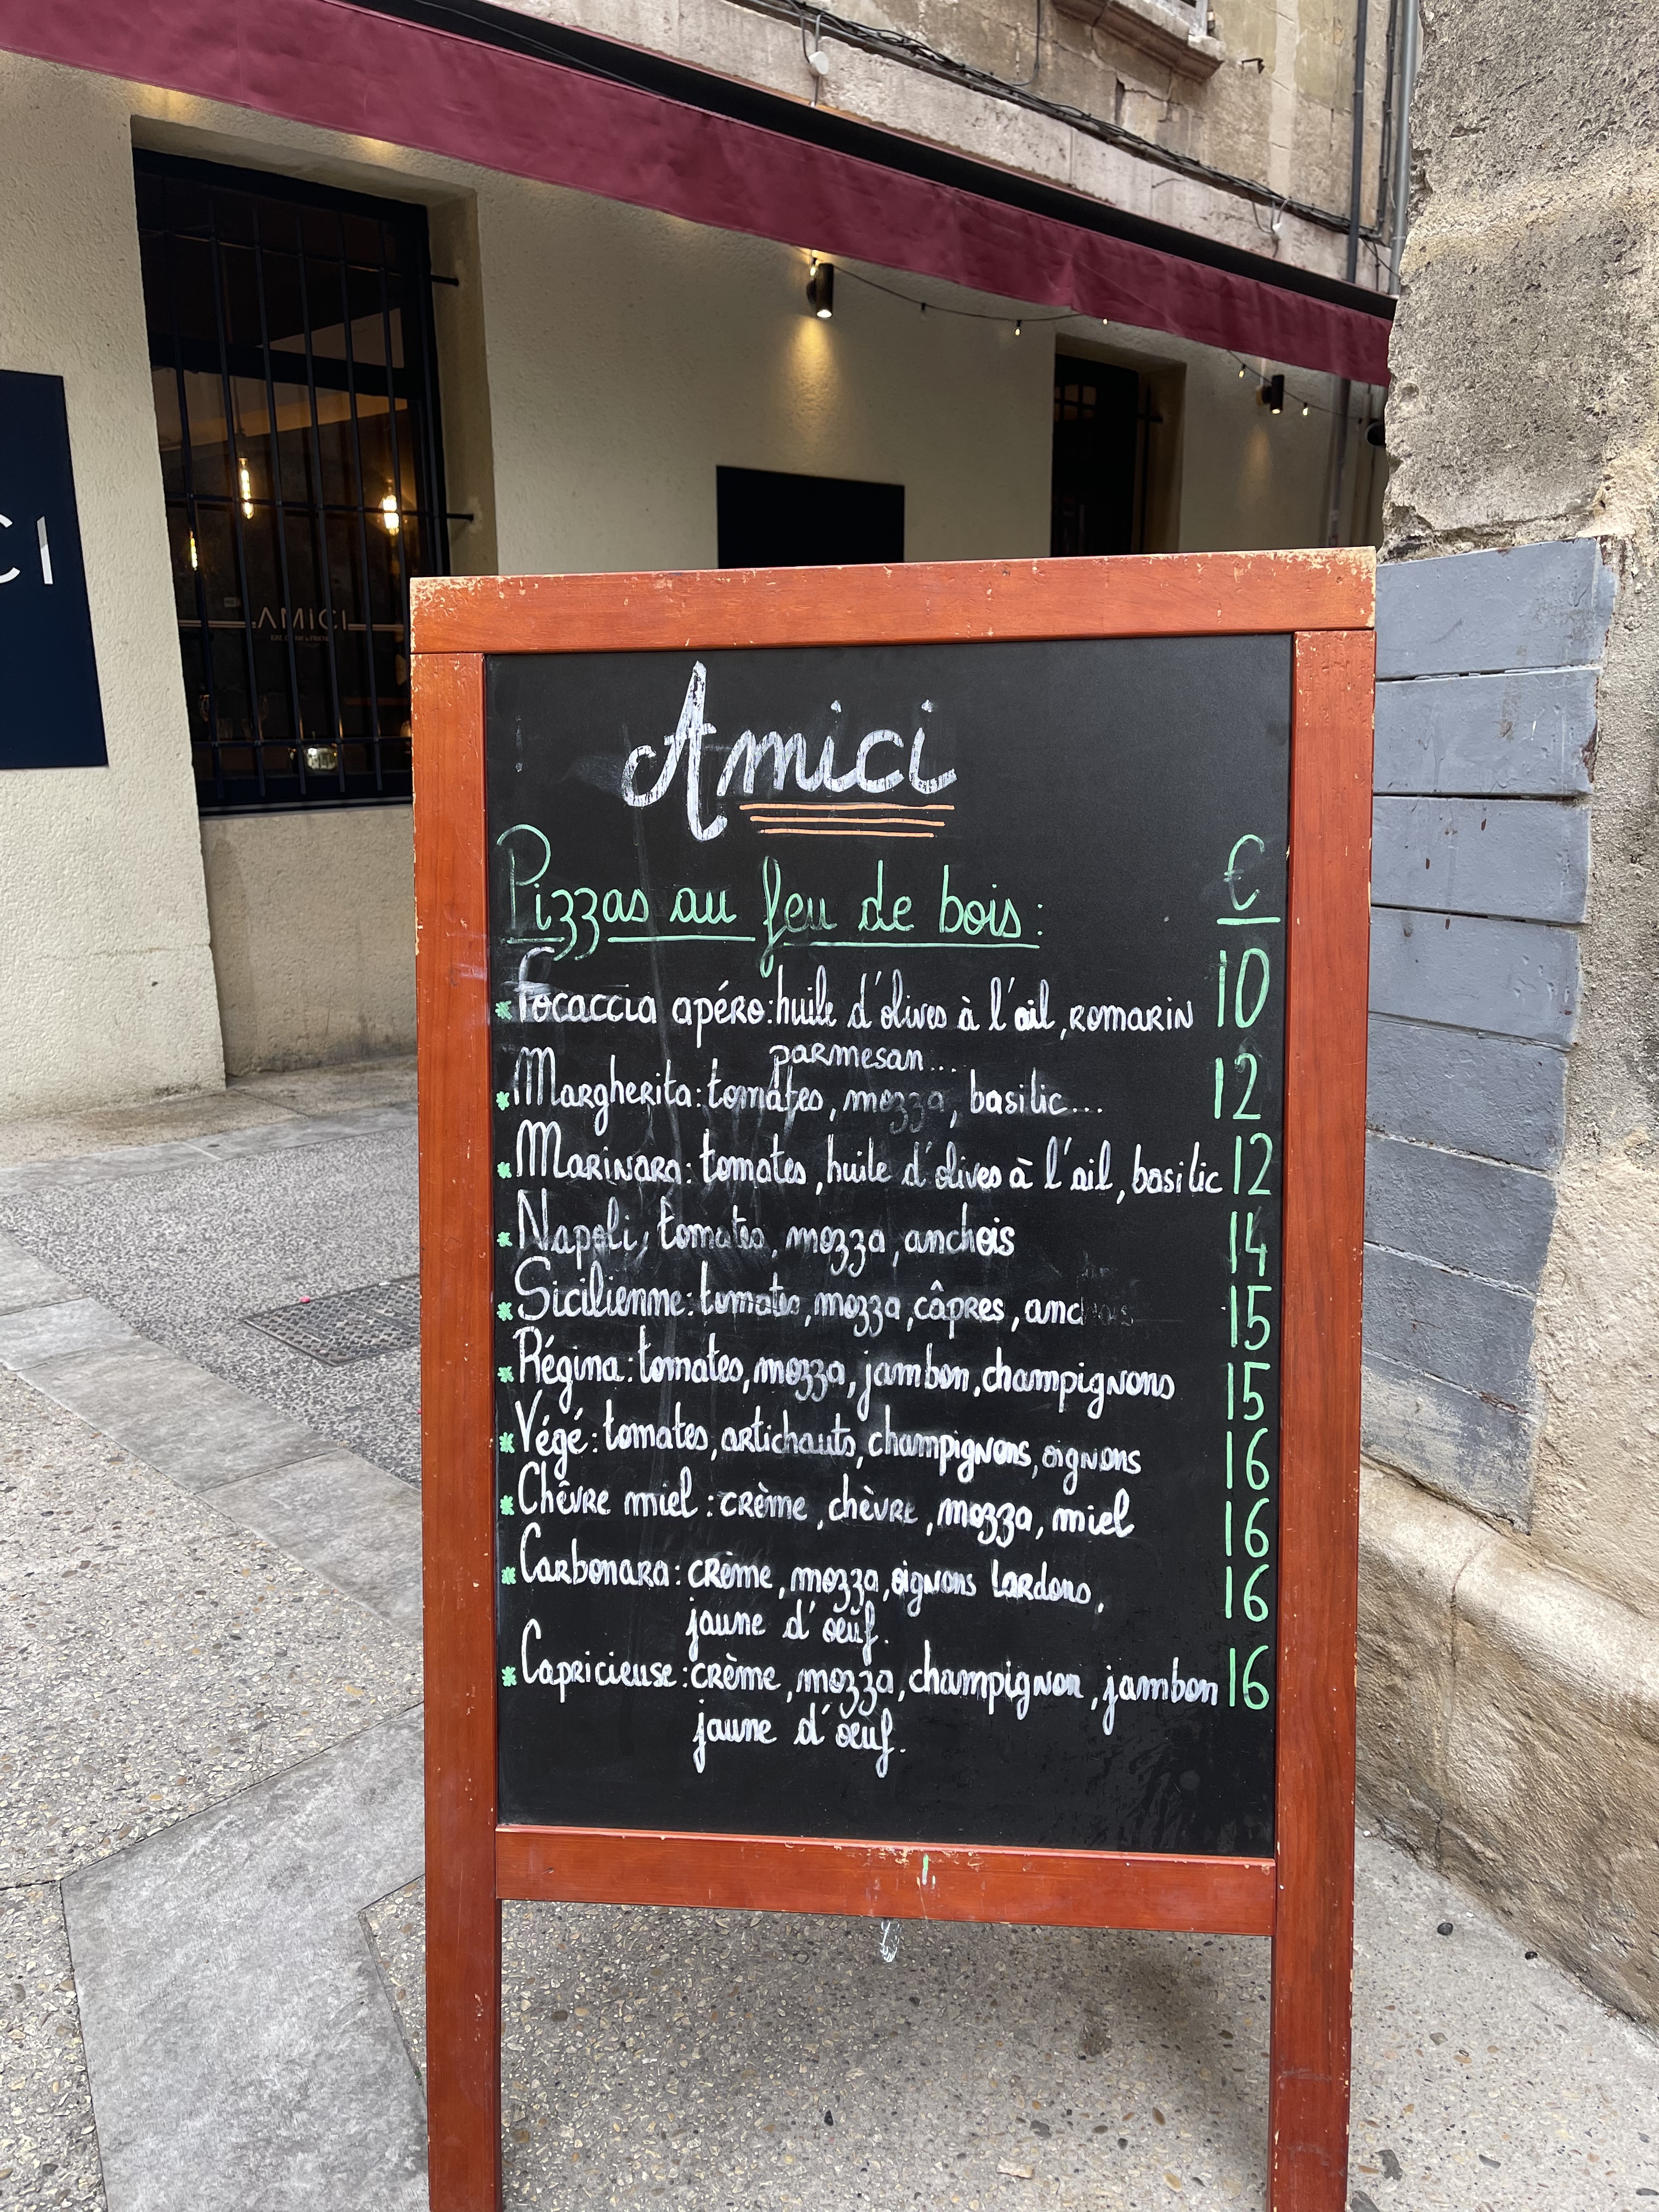 CI
AMICI
Amici
Pizzas au feu de bois : €
*Focaccia apéro: huile d'olives à l'ail, romarin 10
parmesan...
*Margherita: tomates, mozza, basilic... 12
*Marinara: tomates, huile d'olives à l'ail, basilic 12
*Napoli, tomates, mozza, anchois 14
*Sicilienne: tomates, mozza, câpres, anchois 15
*Régina: tomates, mozza, jambon, champignons 15
*Végé: tomates, artichauts, champignons, oignons 16
*Chêvre miel: crème, chèvre, mozza, miel 16
*Carbonara: crème, mozza, oignons lardons, 16
jaune d'oeuf.
*Capricieuse: crème, mozza, champignon, jambon 16
jaune d'oeuf.